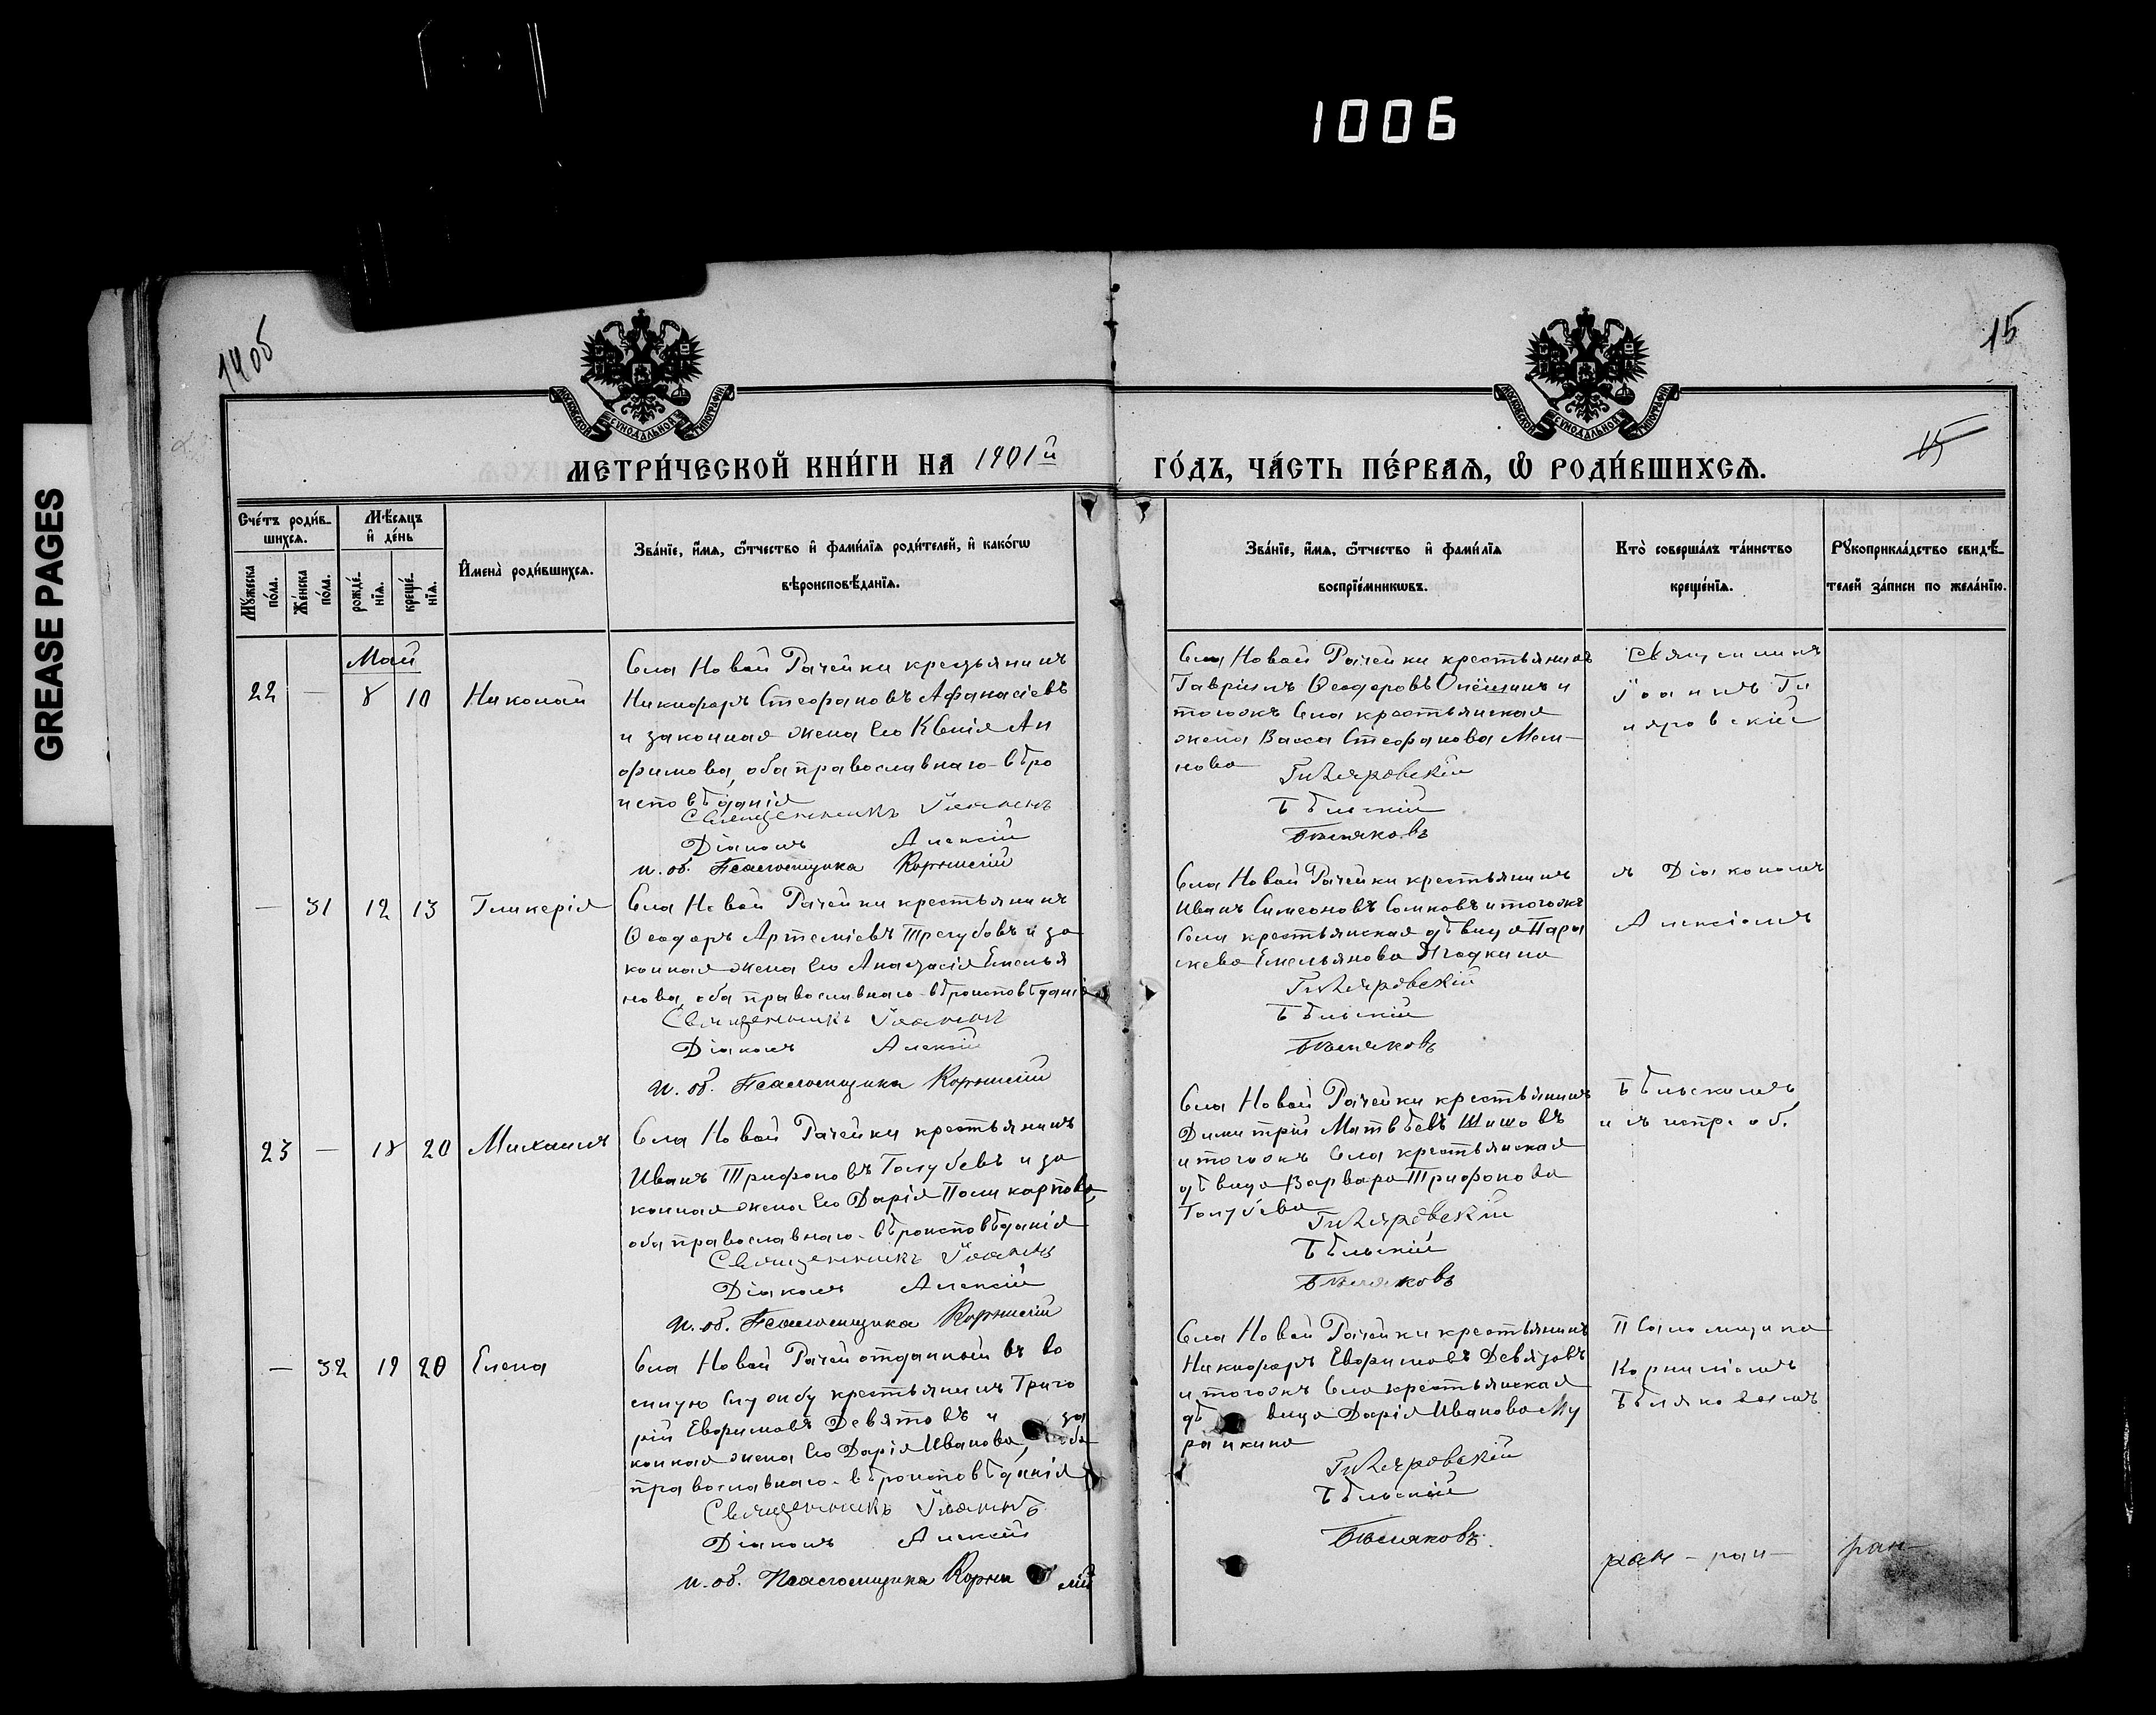 1006
GREASE PAGES
14 об
15
15
МОСКОВСКОЙ СѴНОДАЛЬНОЙ ТИПОГРАФІИ
МОСКОВСКОЙ СѴНОДАЛЬНОЙ ТИПОГРАФІИ
МЕТРИ́ЧЕСКОЙ КНИ́ГИ НА 1901й
ГО́ДЪ, ЧА́СТЬ ПЕ́РВАѦ, Ѿ РОДИ́ВШИХСѦ.
Сче́тъ роди́в-
шихсѧ.
Мꙋ́жеска
по́ла.
Же́нска
по́ла.
Мѣ́сѧцъ
и҆ де́нь
рожде́-
нїѧ.
креще́-
нїѧ.
И҆мена̀ роди́вшихсѧ.
Зва́нїе, и҆́мѧ, ѻ҆́тчество и҆ фами́лїѧ роди́телей, и҆ како́гѡ
вѣроисповѣ́данїѧ.
Зва́нїе, и҆́мѧ, ѻ҆́тчество и҆ фами́лїѧ
воспрїе́мникѡвъ.
Кто̀ соверша́лъ та́инство
креще́нїѧ.
Рꙋкоприкла́дство свидѣ́-
телей за́писи по жела́нїю.
Май
22 — 8 10 Николай
Села Новой Рачейки крестьянинъ
Никифоръ Стефановъ Афанасіевъ
и законная жена его Ксенія Ан
фимова, оба православнаго вѣро
исповѣданія
Священникъ Іоаннъ
Діаконъ Алексій
И. об. Псаломщика Корнилій
Села Новой Рачейки крестьянинъ
Гавріилъ Ѳеодоровъ и
тогожъ села крестьянская
жена Васса Стефанова Мель-
нова
Гиляровскій
Бѣльскій
Бѣляковъ
Священникъ
Іоаннъ Ги
ляровскій
— 31 12 13 Гликерія
Села Новой Рачейки крестьянинъ
Ѳеодоръ Артеміевъ Трегубовъ и за
конная жена его Анастасія Емелья
нова, оба православнаго вѣроисповѣданія
Священникъ Іоаннъ
Діаконъ Алексій
И. об. Псаломщика Корнилій
Села Новой Рачейки крестьянинъ
Иванъ Симеоновъ Сомковъ и тогожъ
села крестьянская дѣвица Пара
скева Емельянова
Гиляровскій
Бѣльскій
Бѣляковъ
съ Діакономъ
Алексіемъ
23 — 18 20 Михаилъ
Села Новой Рачейки крестьянинъ
Иванъ Трифоновъ Голубевъ и за
конная жена его Дарія Поликарпова
оба православнаго вѣроисповѣданія
Священникъ Іоаннъ
Діаконъ Алексій
И. об. Псаломщика Корнилій
Села Новой Рачейки крестьянинъ
Димитрій Матвѣевъ Шишовъ
и тогожъ села крестьянская
дѣвица Варвара Трифонова
Голубева
Гиляровскій
Бѣльскій
Бѣляковъ
Бѣльскимъ
и съ испр. об.
— 32 19 20 Елена
Села Новой Рачей отданный въ во
енную службу крестьянинъ Григо
рій Евфимовъ Девятовъ и за
конная жена его Дарія Иванова, оба
православнаго вѣроисповѣданія
Священникъ Іоаннъ
Діаконъ Алексій
И. об. Псаломщика Корнилій
Села Новой Рачейки крестьянинъ
Никифоръ Евфимовъ Девятовъ
и тогожъ села крестьянская
дѣвица Дарія Иванова Му
райкина
Гиляровскій
Бѣльскій
Бѣляковъ.
Псаломщика
Корниліемъ
Бѣляковымъ